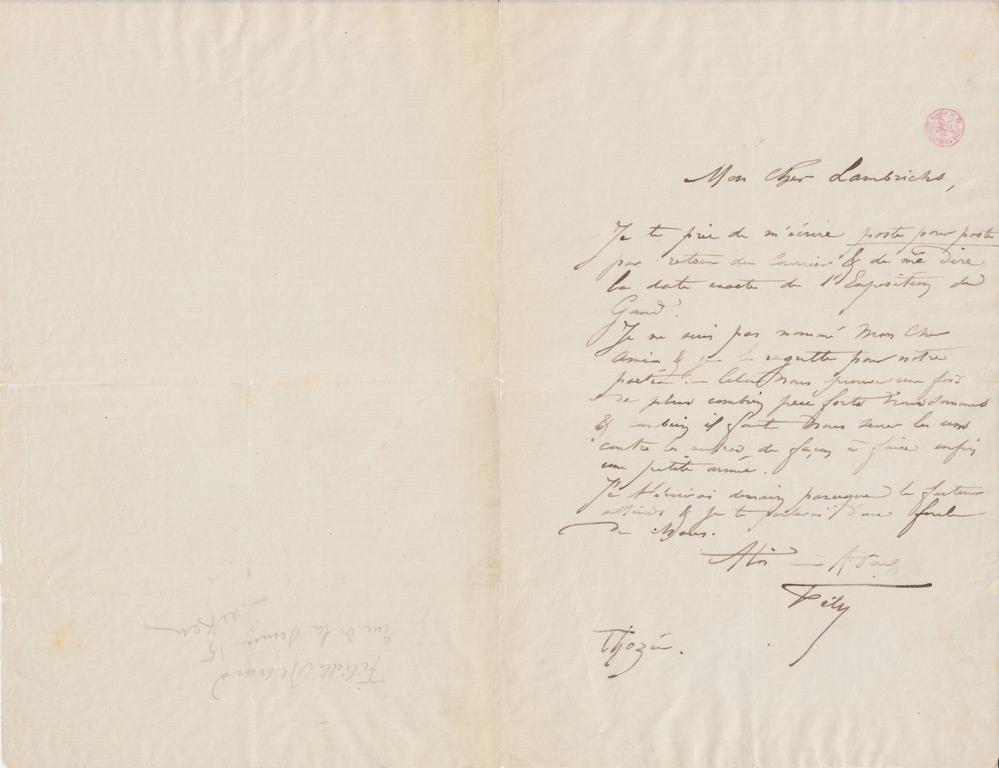 Mon Cher Lambrichs,
Je te prie de m'écrire poste pour poste
par retour du Courrier & de me dire
la date exacte de l'Exposition de
Gand.
Je ne suis pas nommé Mon Cher
Amis & je le regrette pour notre
partie. — Cela nous prouve une fois
de plus combien peu forts nous sommes
& combien il faut nous serrer les uns
contre les autres de façon à faire enfin
une petite armée.
Je t'écrirai demain parceque le facteur
attends & je te parlerai d'une foule
de choses.
A toi — & à vous
Fély
Thozée.
Rue de la 15